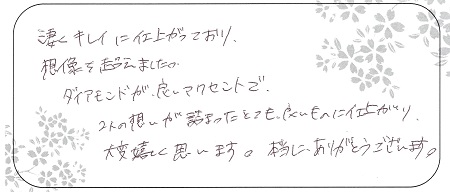 凄くキレイに仕上がっており、
想像を超えました。
ダイアモンドが、良いアクセントで、
2人の想いが詰まったとても良いものに仕上がり、
大変嬉しく思います。本当に、ありがとうございます。